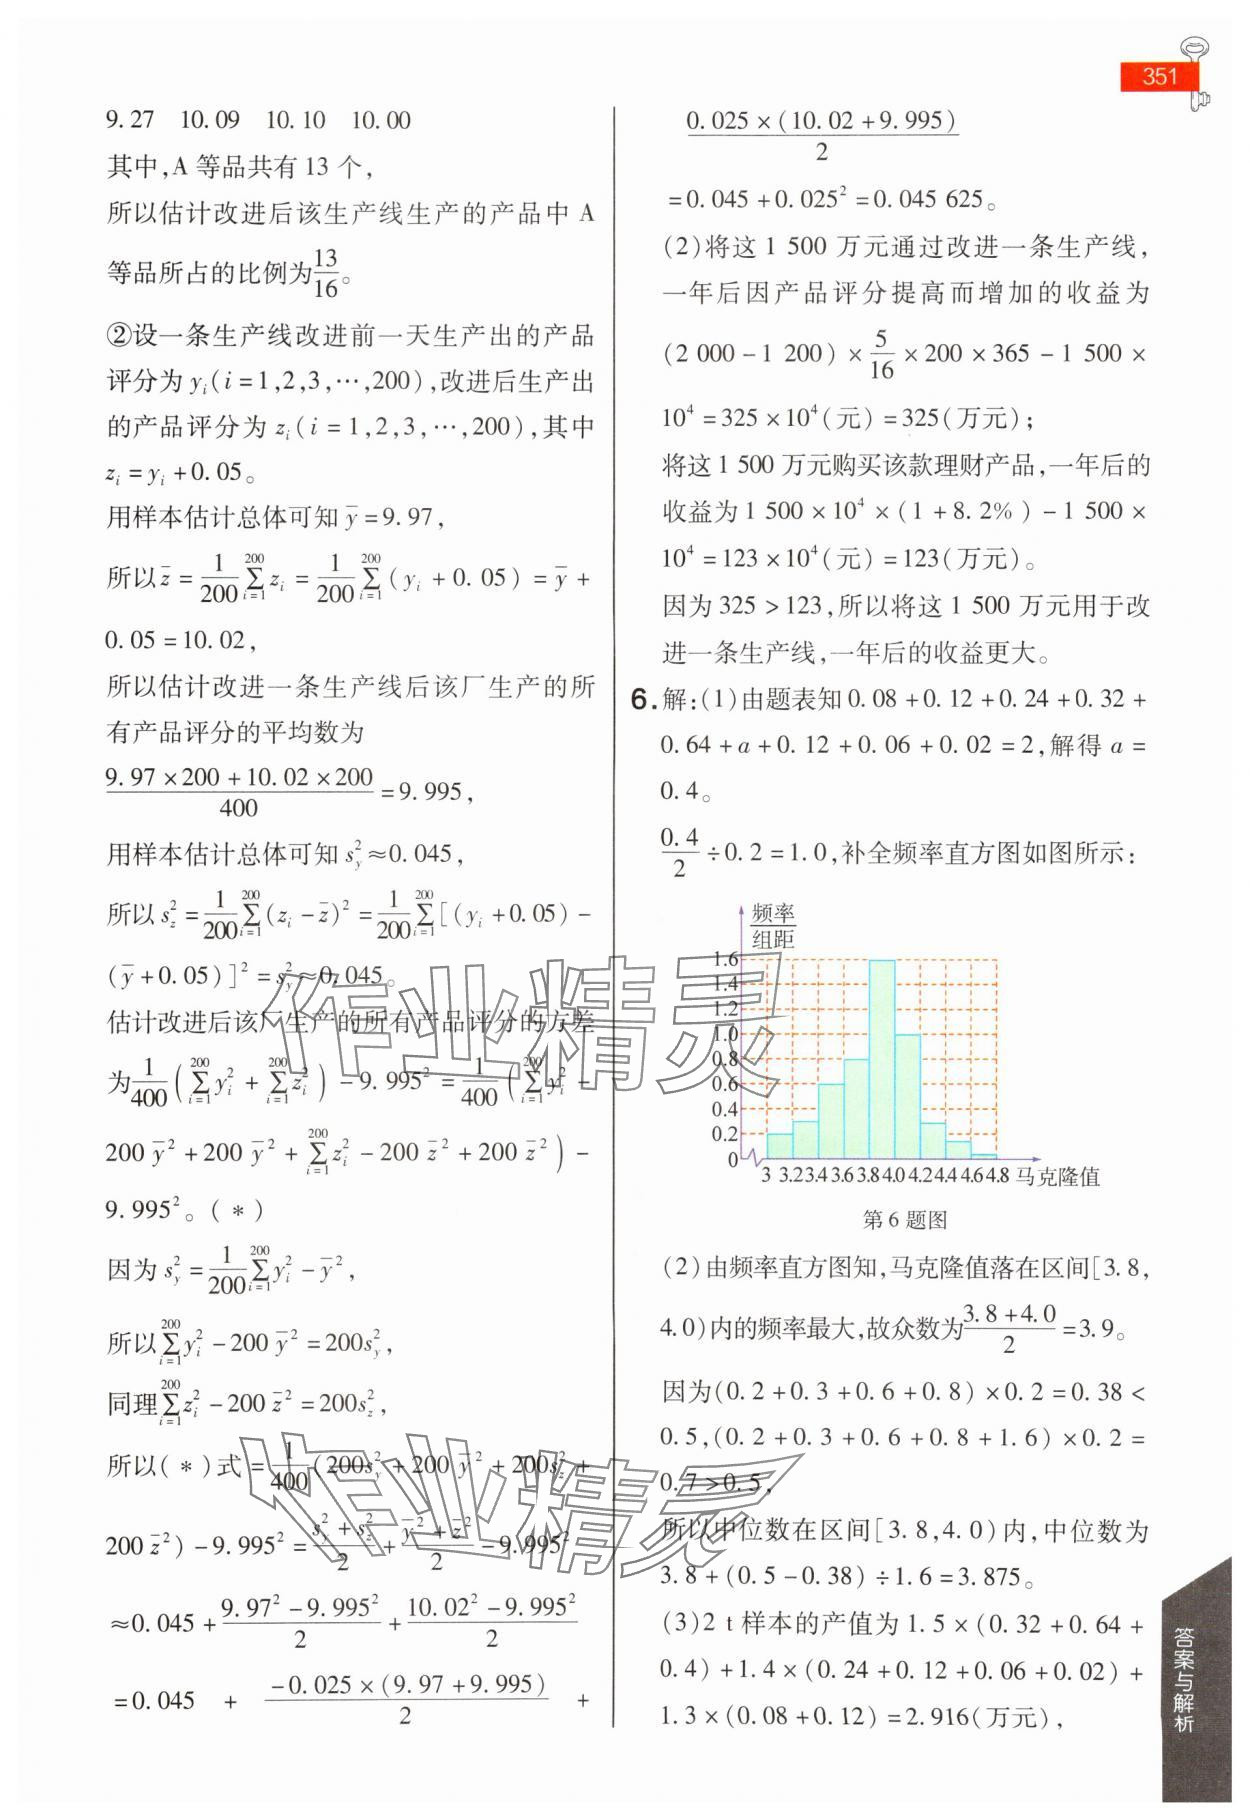 351
9.27 10.09 10.10 10.00
其中,A 等品共有 13 个,
所以估计改进后该生产线生产的产品中 A
等品所占的比例为13/16。
②设一条生产线改进前一天生产出的产品
评分为 yᵢ(i=1,2,3,…,200),改进后生产出
的产品评分为 zᵢ(i=1,2,3,…,200),其中
zᵢ=yᵢ+0.05。
用样本估计总体可知 y̅=9.97,
所以 z̅ = 1/200 ∑_{i=1}^{200} zᵢ = 1/200 ∑_{i=1}^{200} (yᵢ+0.05) = y̅ +
0.05=10.02,
所以估计改进一条生产线后该厂生产的所
有产品评分的平均数为
(9.97×200+10.02×200)/400 =9.995,
用样本估计总体可知 s_y²≈0.045,
所以 s_z² = 1/200 ∑_{i=1}^{200} (zᵢ-z̅)² = 1/200 ∑_{i=1}^{200} [(yᵢ+0.05)-
(y̅+0.05)]²=s_y²≈0.045。
估计改进后该厂生产的所有产品评分的方差
为 1/400 (∑_{i=1}^{200} yᵢ² + ∑_{i=1}^{200} zᵢ²) - 9.995² = 1/400 (∑_{i=1}^{200} yᵢ² -
200 y̅²+200 y̅² + ∑_{i=1}^{200} zᵢ² - 200 z̅²+200 z̅²) -
9.995²。(*)
因为 s_y² = 1/200 ∑_{i=1}^{200} yᵢ² - y̅²,
所以 ∑_{i=1}^{200} yᵢ² - 200 y̅² = 200s_y²,
同理 ∑_{i=1}^{200} zᵢ² - 200 z̅² = 200s_z²,
所以(*)式 = 1/400 (200s_y²+200 y̅²+200s_z²+
200 z̅²)-9.995² = (s_y²+s_z²)/2 + (y̅²+z̅²)/2 - 9.995²
≈0.045+(9.97²-9.995²)/2+(10.02²-9.995²)/2
=0.045 + (-0.025×(9.97+9.995))/2 +
(0.025×(10.02+9.995))/2
=0.045+0.025²=0.045 625。
(2)将这 1 500 万元通过改进一条生产线,
一年后因产品评分提高而增加的收益为
(2 000-1 200)×5/16×200×365-1 500×
10⁴=325×10⁴(元)=325(万元);
将这 1 500 万元购买该款理财产品,一年后的
收益为 1 500×10⁴×(1+8.2%)-1 500×
10⁴=123×10⁴(元)=123(万元)。
因为 325>123,所以将这 1 500 万元用于改
进一条生产线,一年后的收益更大。
6.解:(1)由题表知 0.08+0.12+0.24+0.32+
0.64+a+0.12+0.06+0.02=2,解得 a=
0.4。
0.4/2÷0.2=1.0,补全频率直方图如图所示:
频率/组距
1.6
1.4
1.2
1.0
0.8
0.6
0.4
0.2
0
3 3.2 3.4 3.6 3.8 4.0 4.2 4.4 4.6 4.8 马克隆值
第 6 题图
(2)由频率直方图知,马克隆值落在区间[3.8,
4.0)内的频率最大,故众数为(3.8+4.0)/2=3.9。
因为(0.2+0.3+0.6+0.8)×0.2=0.38<
0.5,(0.2+0.3+0.6+0.8+1.6)×0.2=
0.7>0.5,
所以中位数在区间[3.8,4.0)内,中位数为
3.8+(0.5-0.38)÷1.6=3.875。
(3)2 t 样本的产值为 1.5×(0.32+0.64+
0.4)+1.4×(0.24+0.12+0.06+0.02)+
1.3×(0.08+0.12)=2.916(万元),
答案与解析
作业精灵
作业精灵